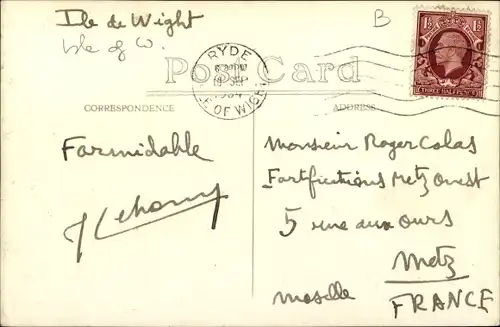 Ile de Wight
Isle of W.
B
RYDE
ISLE OF WIGHT
1934
1½
THREE HALF PENCE
Post Card
CORRESPONDENCE
ADDRESS
Farmidable
Monsieur Roger Colas
Fortifications Metz Ouest
5 rue aux ours
Metz
Moselle
FRANCE